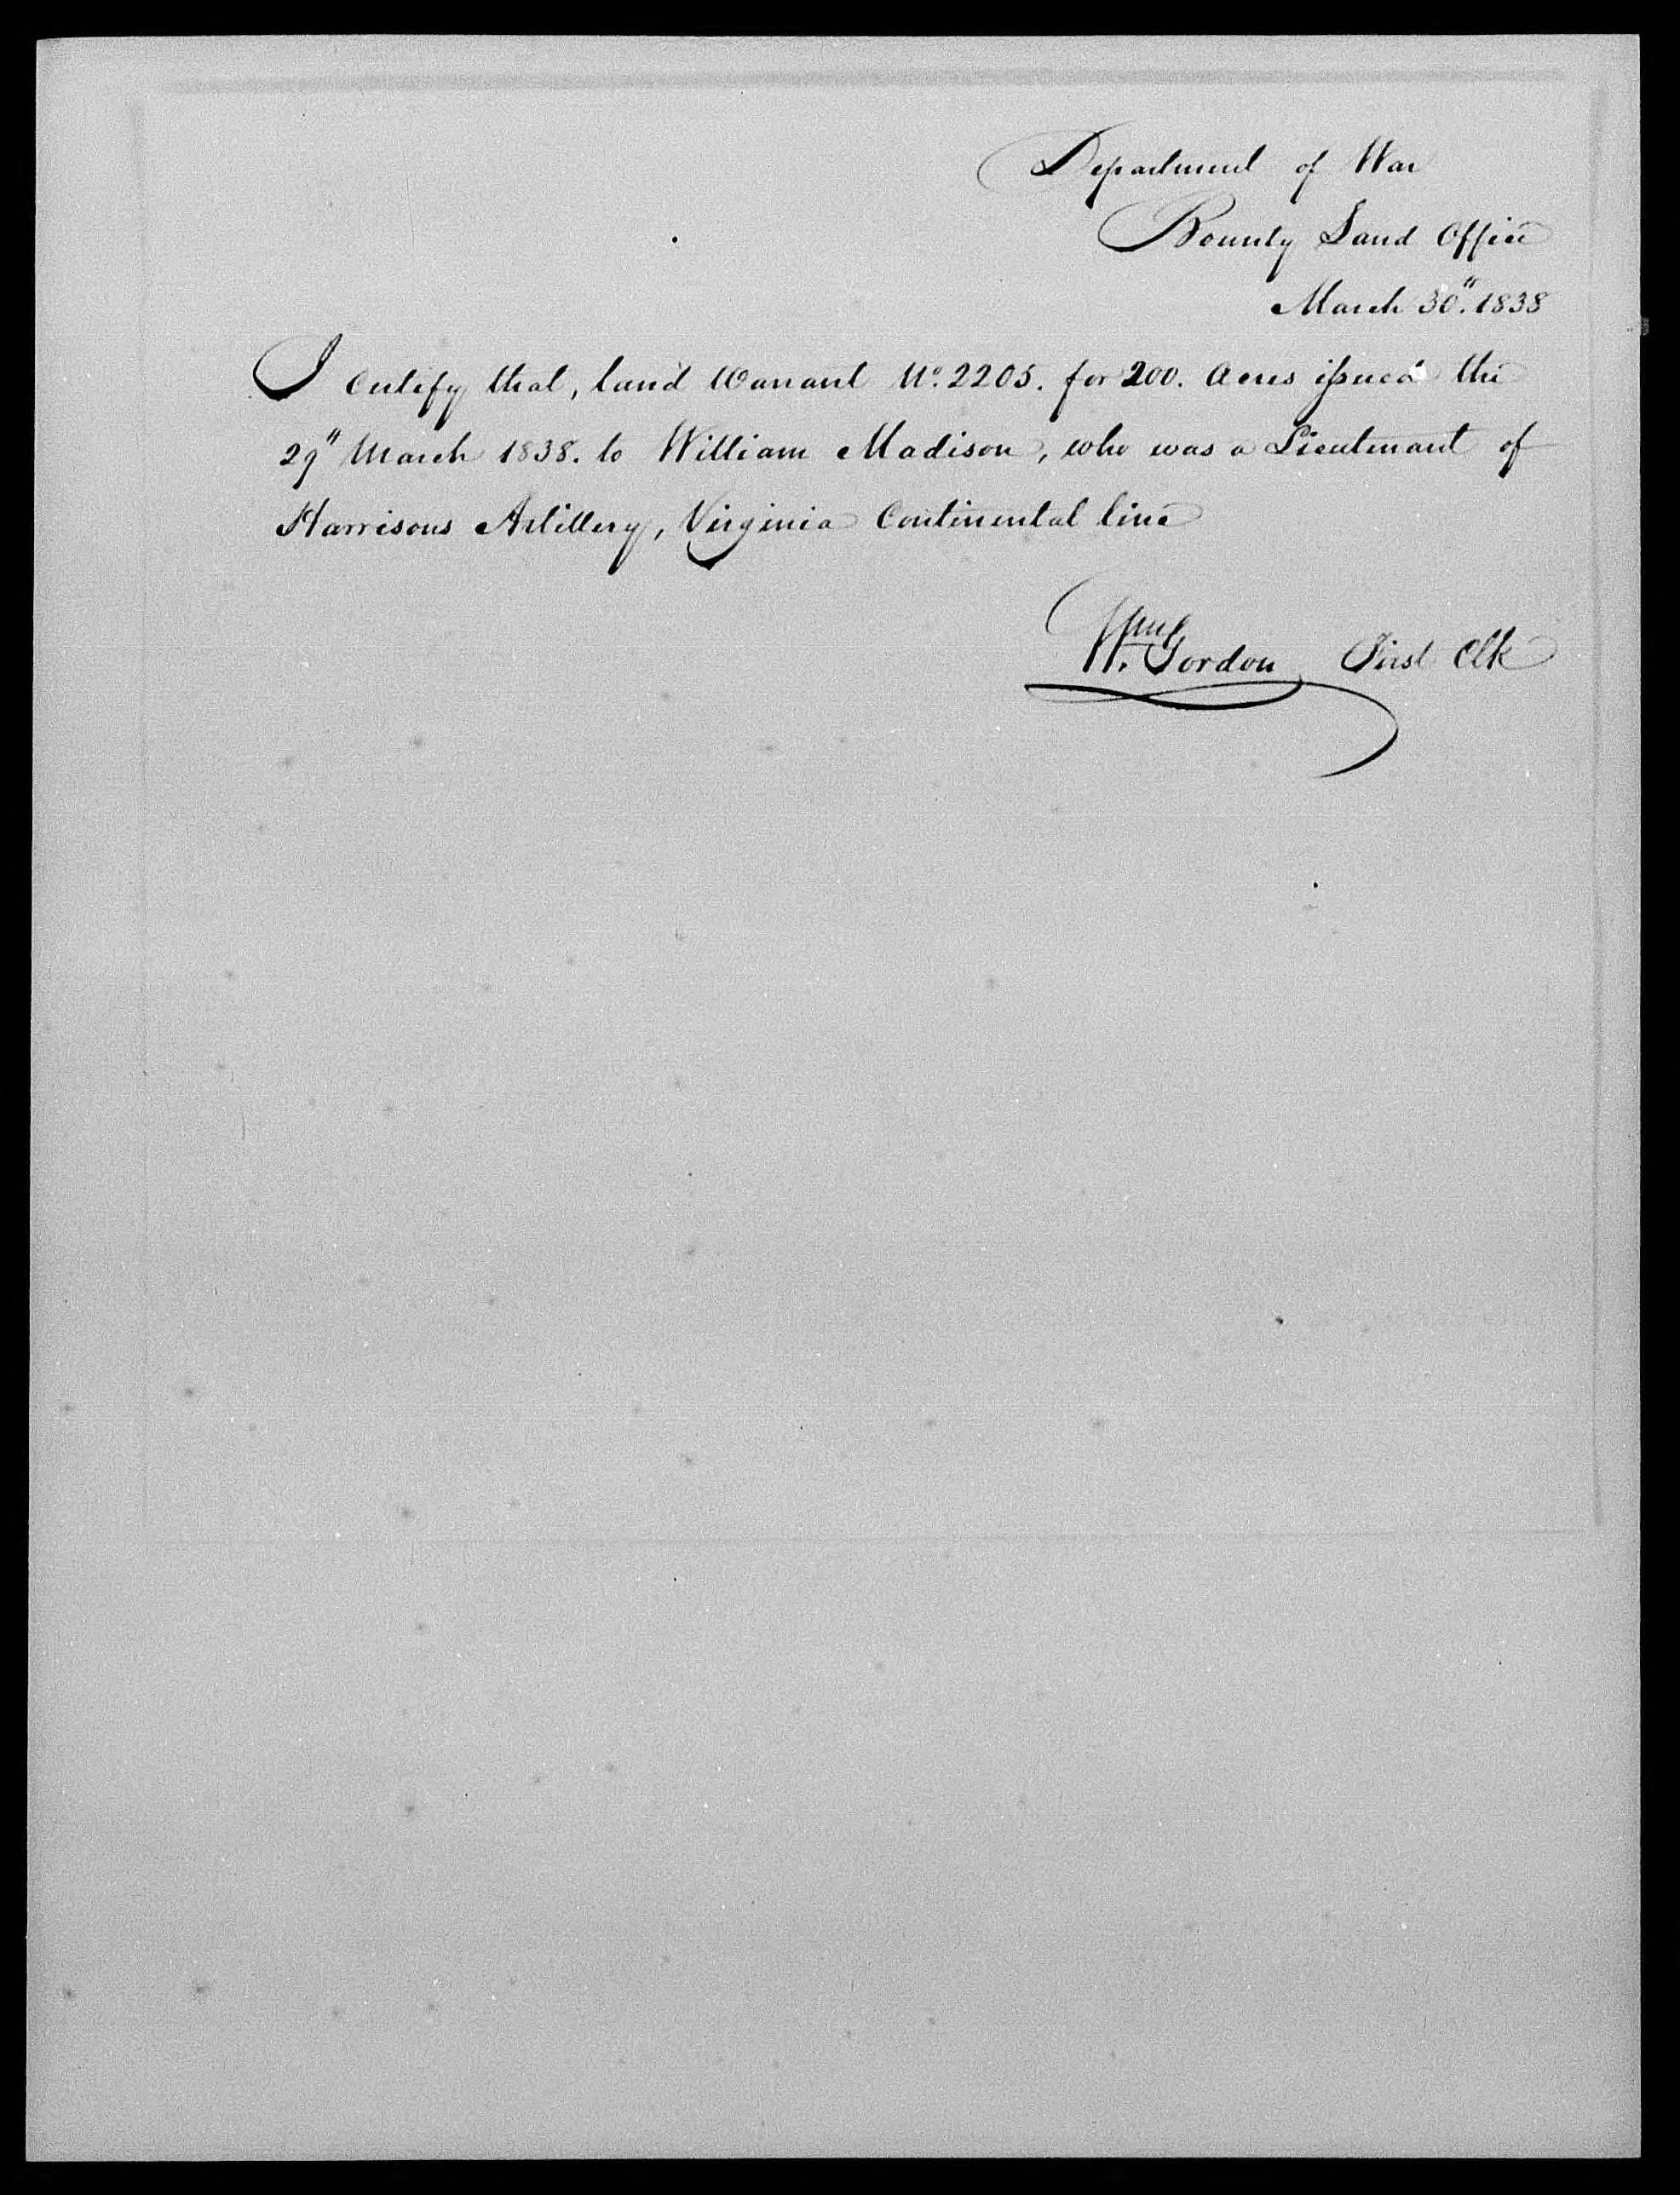 Department of War
Bounty Land Office
March 30". 1838
I Certify that, land Warrant No. 2205. for 200. Acres issued the
29" March 1838. to William Madison, who was a Lieutenant of
Harrisons Artillery, Virginia Continental line
Wm Gordon First Clk